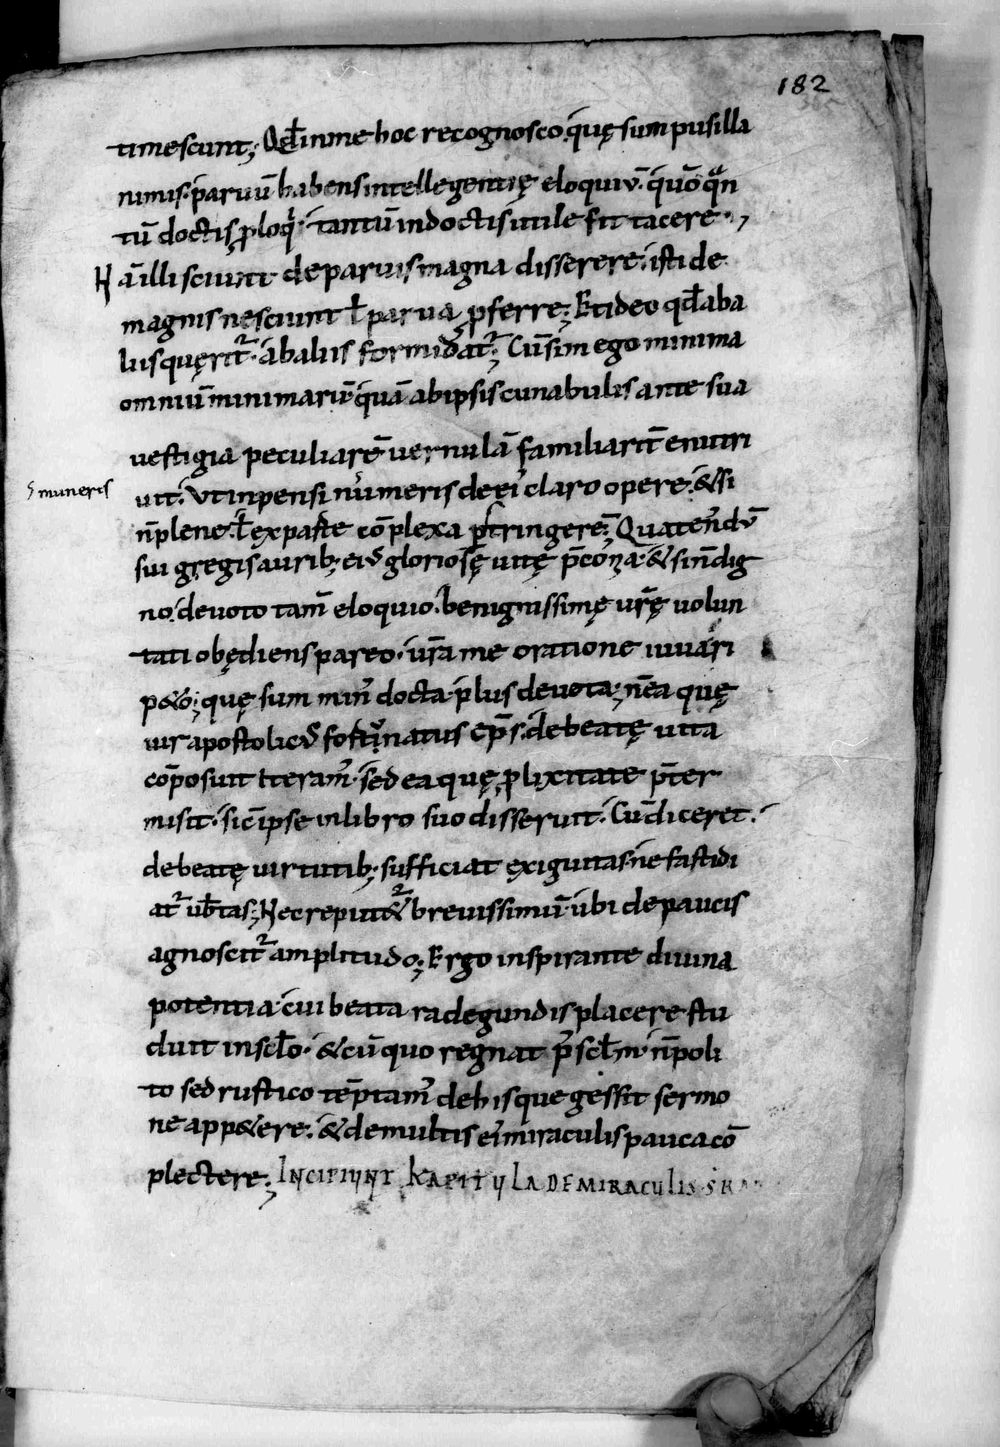 182
timescunt; Qđ in me hoc recognosco. quę sum pusilla
nimis. paruū habens intellegentię eloquiū. quō qn̄
tū doctis ꝓloqi. tantū indoctis utile fit tacere.,
Nā illi sciunt de paruis magna disserere. isti de
magnis nesciunt ł parua ꝓferre; Et ideo qđ ab a
liis quęrit̄. ab aliis formidat̄; Cū sim ego minima
omniū minimarū quā ab ipsis cunabulis ante sua
uestigia peculiarē uernulā familiarit̄ enutri
uit. Ut inpensi numeris de ei᾽ claro opere. & si
muneris
n̄ plene. ł ex parte cōplexa ꝑstringerē; Quaten᾽ dū
sui gregis aurib; ei᾽ gloriosę uitę p̄conia. & si indig
no. deuoto tam̄ eloquio. benignissimę ur̄ę uolun
tati obędiens pareo. ur̄a me oratione iuuari
p&o; quę sum min᾽ docta. plus deuota; n̄ ea quę
uir apostolic᾽ fortunatus ep̄s. de beatę uita
cōposuit iteram᾽. sed ea quę ꝓlixitate p̄ter
misit. sic̄ ipse in libro suo disseruit. Cū diceret.
de beatę uirtutib; sufficiat exiguitas. ne fastidi
at̄ ub̄tas; Nec reput&̄ breuissimū. ubi de paucis
agnoscit̄ amplitudo; Ergo inspirante diuina
potentia. cui beata radegundis placere stu
duit in scło. & cū quo regnat p᾽ scłm. n̄ poli
to sed rustico tēptam᾽ de his que gessit sermo
ne app&ere. & de multis ei᾽ miraculis pauca cō
plectere; INCIPIUNT KAPITULA DE MIRACULIS